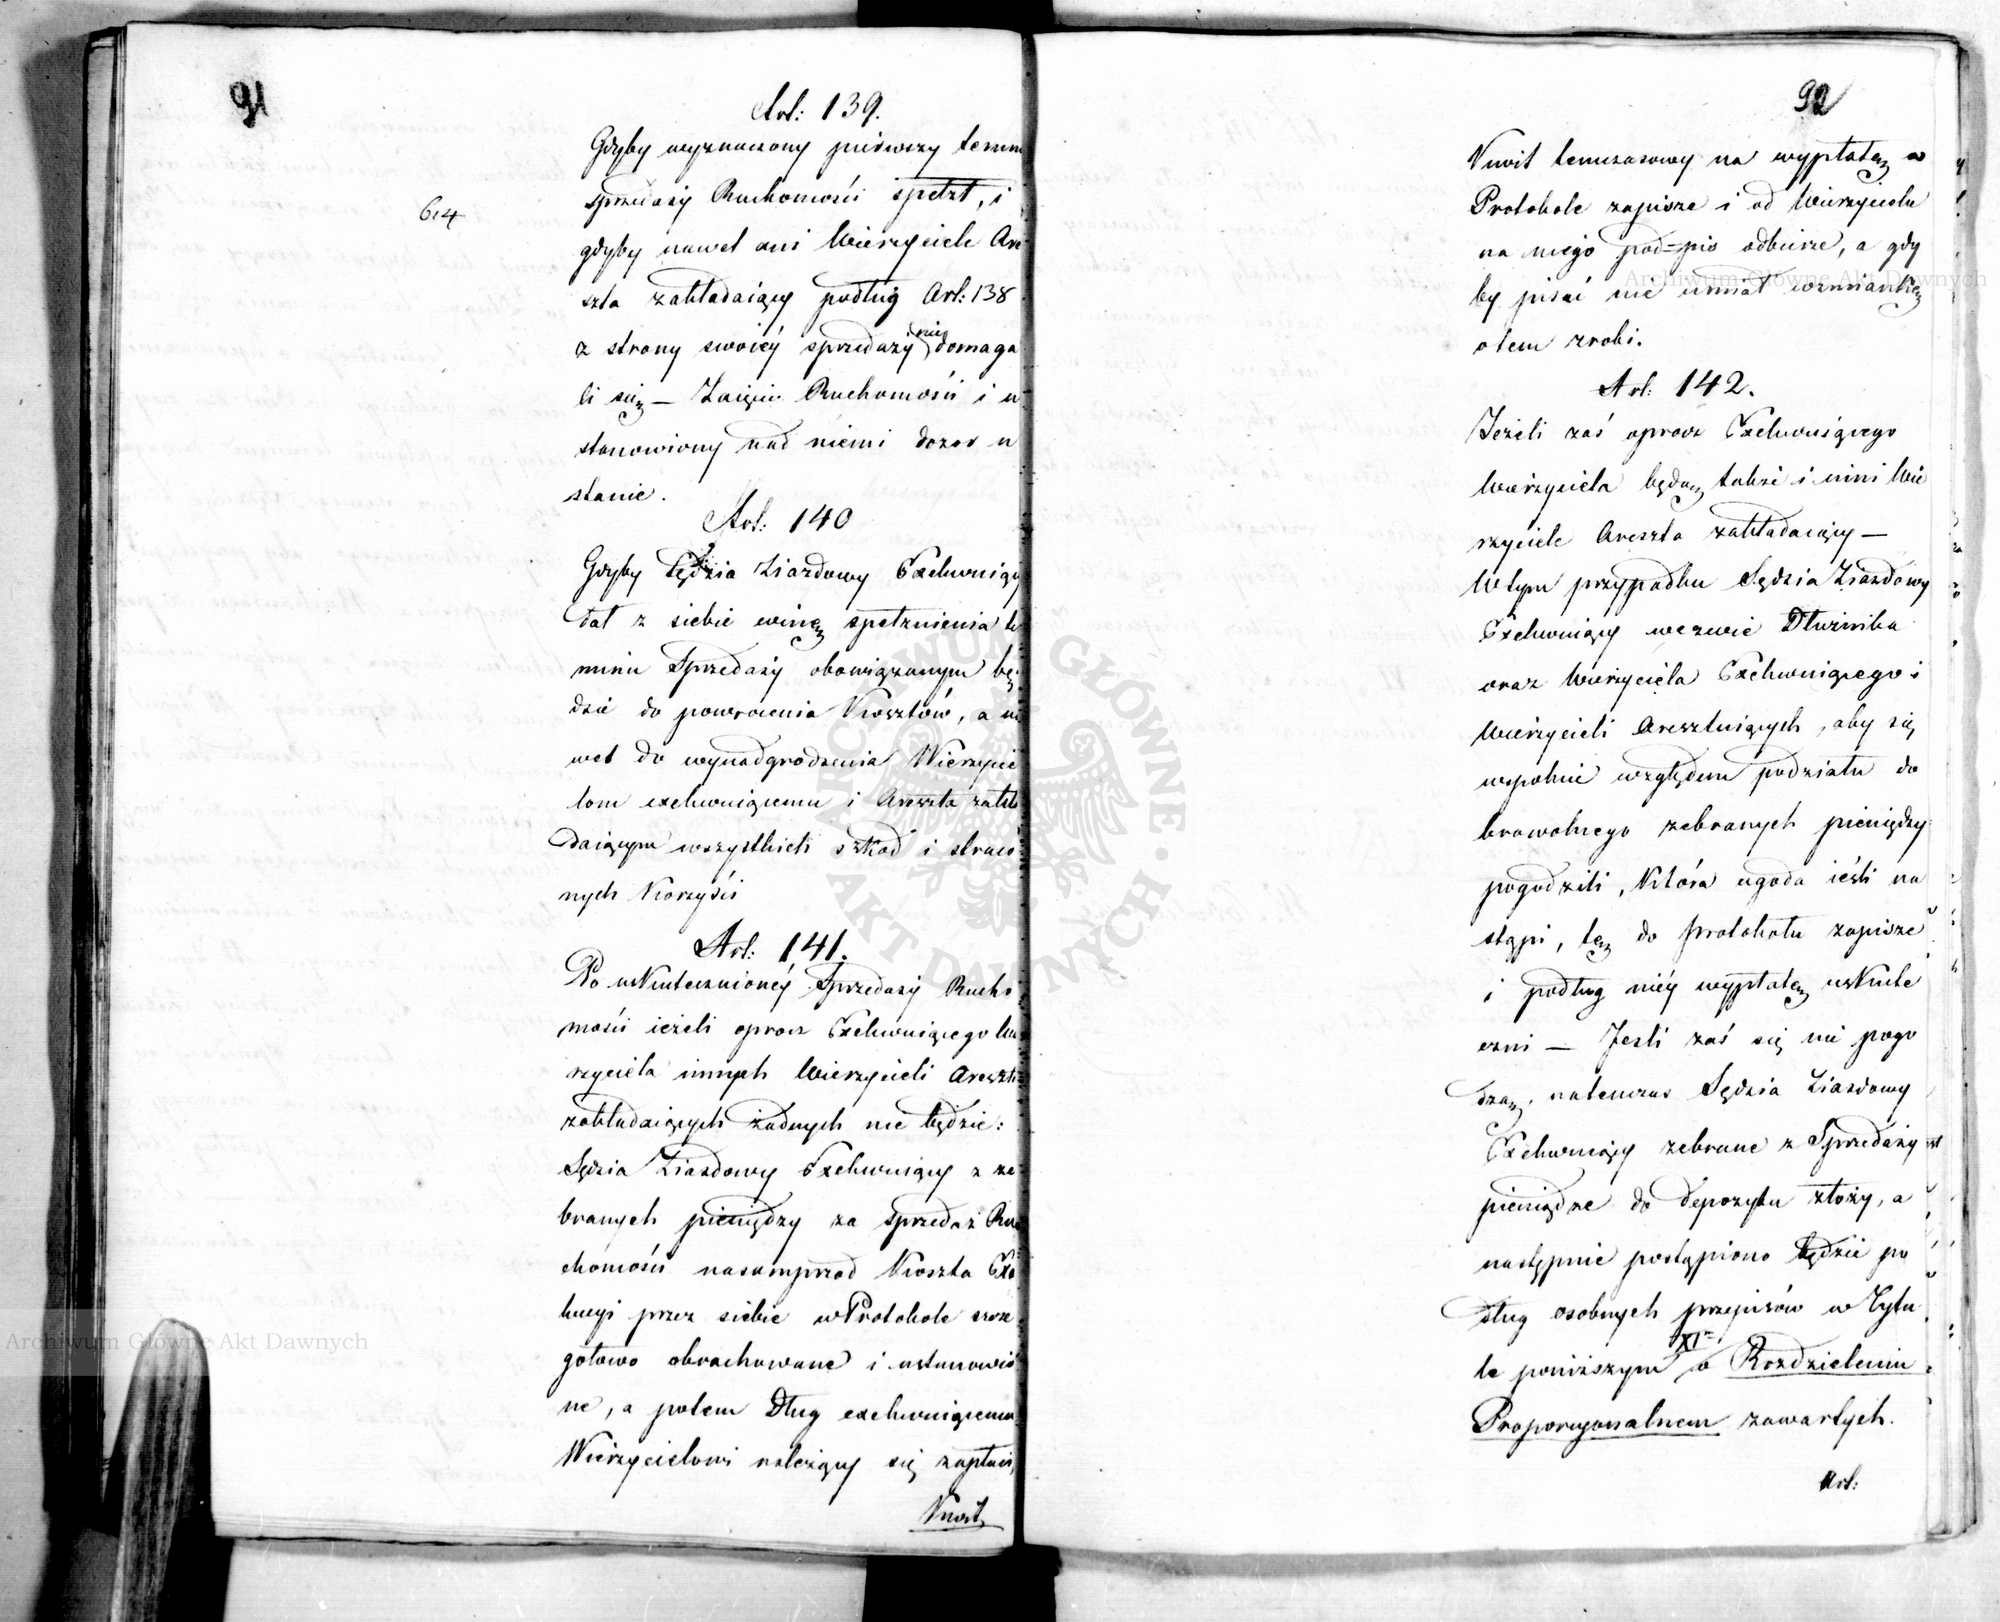 91
Art: 139.
Gdyby wyznaczony pierwszy termin
sprzedaży Ruchomości spełzł, i
614
gdyby nawet ani Wierzyciele Are
szta zakładaiący podług Art: 138
z strony swoiéy sprzedaży nie domaga
li się — Zaięcie Ruchomości i u
stanowiony nad niemi dozor u
stanie.
Art: 140
Gdyby Sędzia Ziazdowy Exekwuiący
dał z siebie winę spełznienia ter
minu Sprzedaży obowiązanym bę
dzie do powrócenia Kosztów, a na
wet do wynadgrodzenia Wierzycie
lom exekwuiącemu i Areszta zakła
daiącym wszystkich szkod i straco
nych Korzyści
Art: 141.
Po uskutecznionéy Sprzedaży Rucho
mości ieżeli oprocz Exekwuiącego Wie
rzyciela innych Wierzycieli Areszta
zakładaiących żadnych nie będzie:
Sędzia Ziazdowy Exekwuiący z ze
branych pieniędzy za sprzedaż Ru
chomości nasamprzod Koszta Exe
kucyi przez siebie w Protokole szcze
gołowo obrachowane i ustanowio
ne, a potem Dług exekwuiącemu
Wierzycielowi należący się zapłaci,
Kwit
92
Kwit temczasowy na wypłatę w
Protokole zapisze i od Wierzyciela
na niego pod=pis odbierze, a gdy
by pisać nie umiał wzmiankę
otem zrobi.
Art: 142.
Jeżeli zaś oprocz Exekwuiącego
Wierzyciela będą także i inni Wie
rzyciele Areszta zakładaiący —
Wtym przypadku Sędzia Ziazdowy
Exekwuiący wezwie Dłużnika
oraz Wierzyciela Exekwuiącego i
Wierzycieli Aresztuiących, aby się
wspolnie względem podziału do
browolnego zebranych pieniędzy
pogodzili, Która ugoda ieśli na
stąpi, tę do protokołu zapisze
i podług niéy wypłatę uskute
czni — Jeśli zaś się nie pogo
dzą, natenczas Sędzia Ziazdowy
Exekwuiący zebrane z Sprzedaży
pieniądze do depozytu złoży, a
następnie postąpiono będzie po
dług osobnych przepisów w Tytu
le poniższym XI= o Rozdzieleniu
Proporcyonalnem zawartych.
Art:
Archiwum Główne Akt Dawnych
Archiwum Główne Akt Dawnych
ARCHIWUM GŁÓWNE · AKT DAWNYCH ·